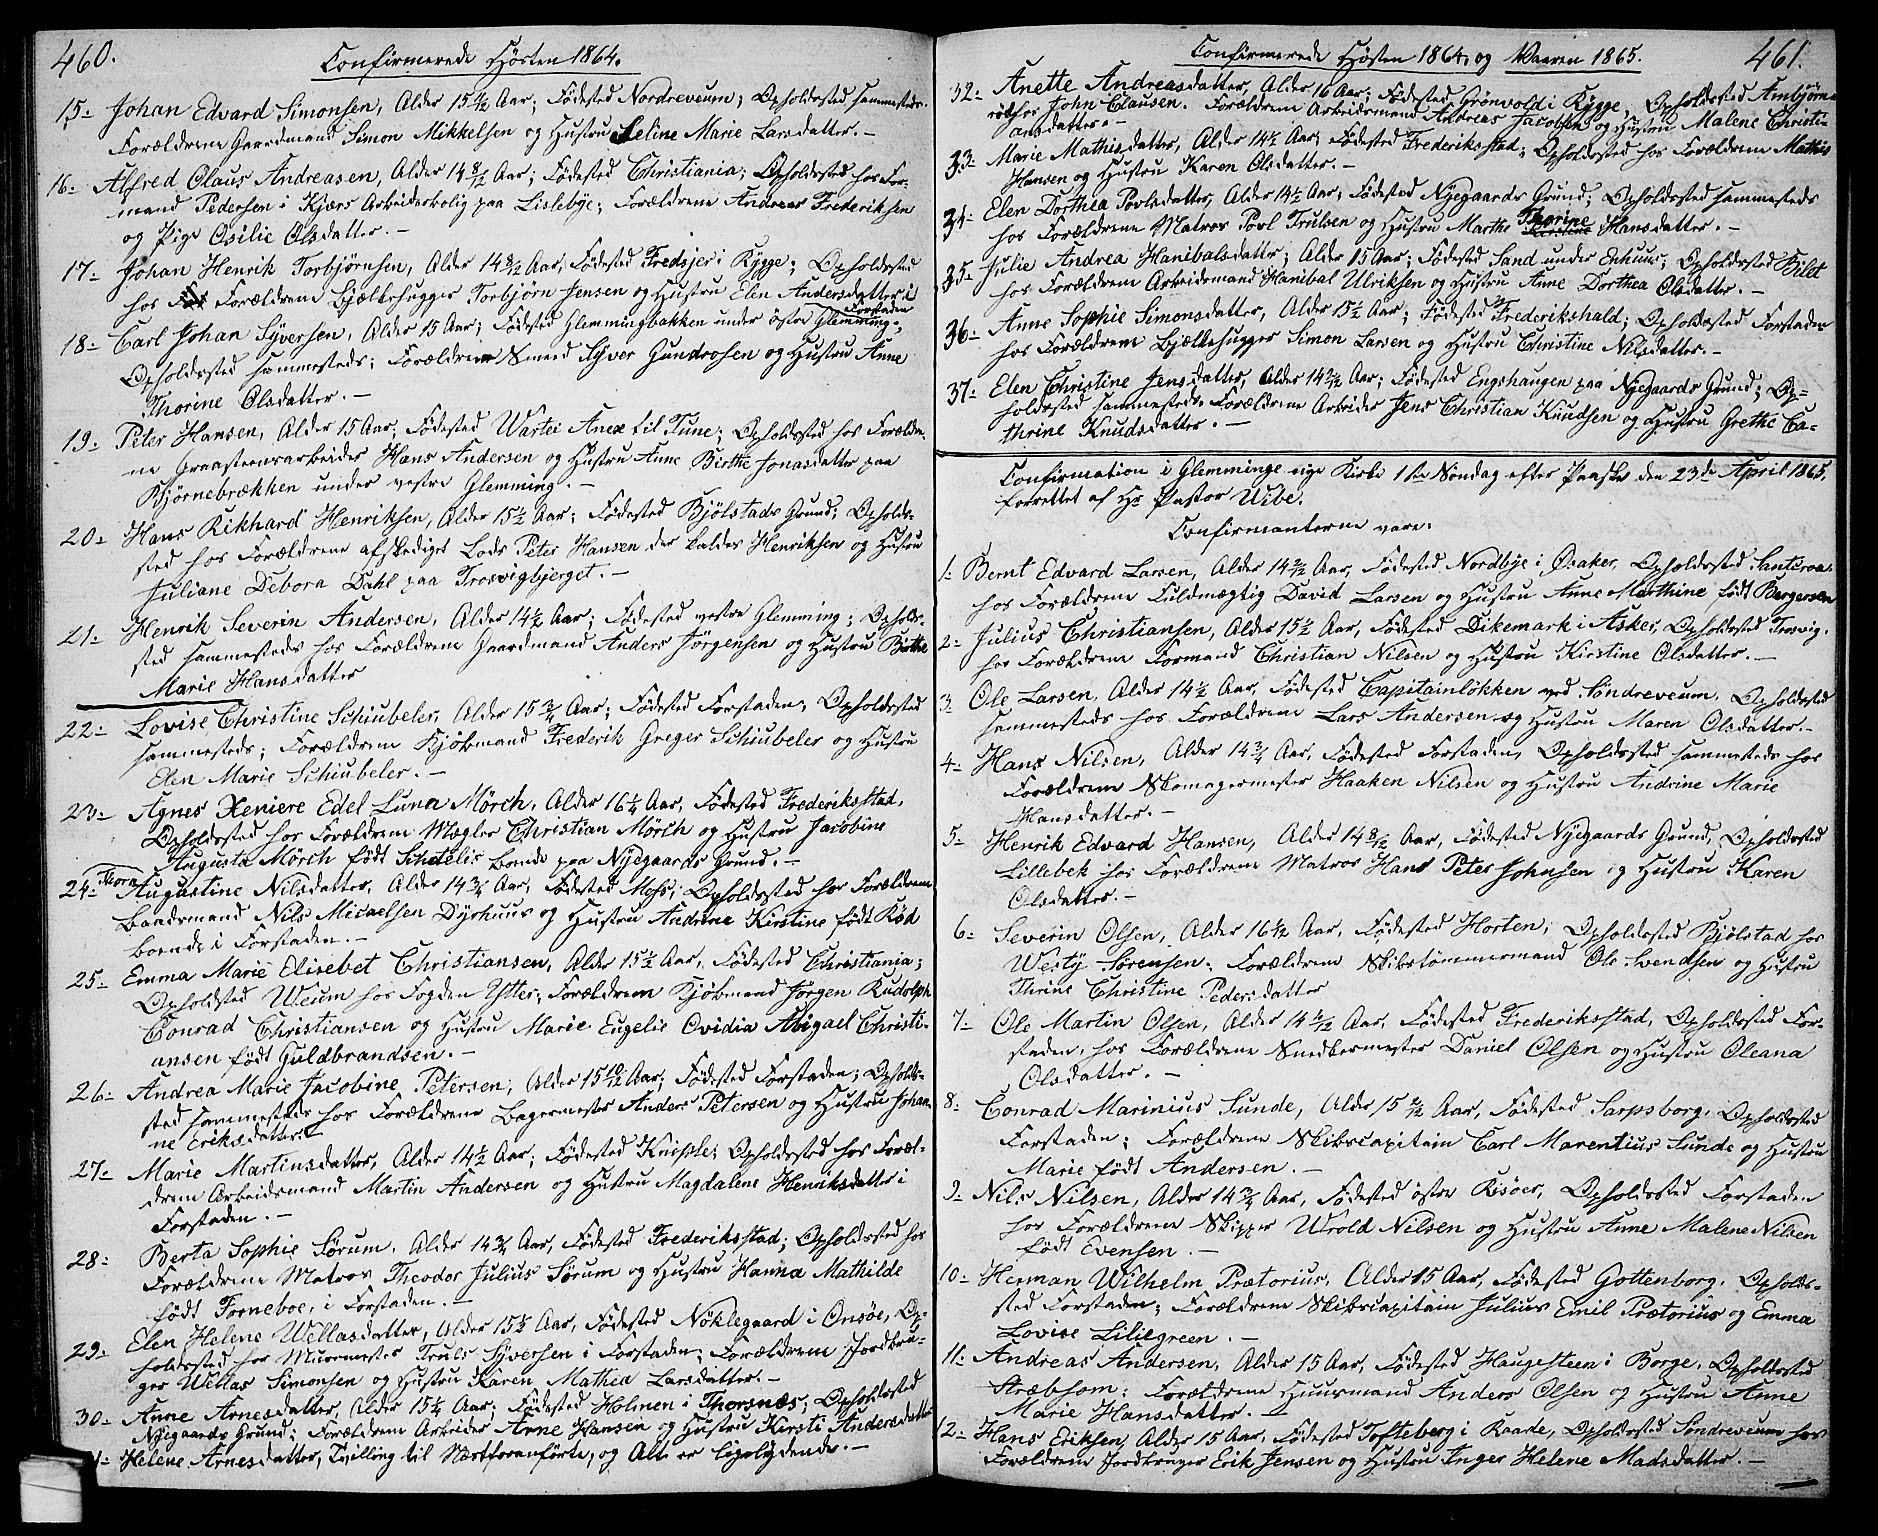 460.
Confirmerede Høsten 1864.
15- Johan Edvard Simonsen, Alder 15 4/12 Aar; Födested Nordreveum; Opholdssted sammesteds.
Forældrene Gaardmand Simon Mikkelsen og Hustru Seline Marie Larsdatter.-
16- Alfred Olaus Andreasen, Alder 14 8/12 Aar; Födested Christiania; Opholdssted hos For-
mand Pedersen i Kjærs Arbeiderbolig paa Lislebye; Forældrene Andreas Frederiksen
og Pige Osilie Olsdatter.-
17- Johan Henrik Torbjørnsen, Alder 14 8/12 Aar, Födested Fredsjer i Rygge; Opholdssted
hos Forældrene Bjelkehugger Torbjørn Jensen og Hustru Elen Andersdatter i
Forstaden
18- Carl Johan Syversen, Alder 15 Aar; Födested Glemmingbakken under östre Glemming-
Opholdssted sammesteds; Forældrene Smeed Syver Gundrosen og Hustru Anne
Thorine Olsdatter.-
19- Peter Hansen, Alder 15 Aar; Födested Wartei Anex til Tune; Opholdssted hos Forældre-
ne Graasteensarbeider Hans Andersen og Hustru Anne Birthe Jonasdatter paa
Bjørnebrækken under vestre Glemming.-
20- Hans Rikhard Henriksen, Alder 15 1/2 Aar; Födested Bjölstads Grund; Opholds-
sted hos Forældrene afskediget Lods Peter Hansen der kaldes Henriksen og Hustru
Juliane Debora Dahl paa Trosvigbjerget.-
21- Henrik Severin Andersen, Alder 14 1/2 Aar; Födested vestre Glemming; Opholds-
sted sammesteds hos Forældrene Gaardmand Anders Jörgensen og Hustru Birthe
Marie Hansdatter
22- Lovise Christine Schiubeler, Alder 15 3/4 Aar; Födested Forstaden; Opholdssted
sammesteds; Forældrene Kjöbmand Frederik Greger Schiubeler og Hustru
Elen Marie Schiubeler.-
23- Agnes Xeniere Edel Luna Mörch, Alder 16 1/4 Aar, Födested Frederiksstad,
Opholdssted hos Forældrene Mægler Christian Mörch og Hustru Jacobine
Augusta Mörch födt Schetelig boende paa Nyegaards Grund.-
Thora
24- Augustine Nilsdatter, Alder 14 3/4 Aar, Födested Moss; Opholdssted hos Forældrene
Baadsmand Nils Micaelsen Dyrhuus og Hustru Andrine Kirstine födt Röd
boende i Forstaden.-
25- Emma Marie Elisebet Christiansen, Alder 15 1/2 Aar, Födested Christiania;
Opholdssted Weum hos Fogden Ytter; Forældrene Kjöbmand Jörgen Rudolph
Conrad Christiansen og Hustru Marie Eugelie Ovidia Abigael Christi-
ansen födt Guldbrandsen.-
26- Andrea Marie Jacobine Petersen, Alder 15 10/12 Aar; Födested Forstaden; Opholds-
sted sammesteds hos Forældrene Bagermester Anders Petersen og Hustru Johan-
ne Eriksdatter.
27- Marie Martinsdatter, Alder 14 1/2 Aar; Födested Knipple; Opholdssted hos Foræl-
drene Arbeidsmand Martin Andersen og Hustru Magdalene Henriksdatter i
Forstaden.-
28- Berta Sophie Sörum, Alder 14 3/4 Aar, Födested Frederiksstad; Opholdssted hos
Forældrene Matros Theodor Julius Sörum og Hustru Hanna Mathilde
födt Torneboe, i Forstaden.-
29- Elen Helene Wellasdatter, Alder 15 1/2 Aar, Födested Nöklegaard i Onsöe, Op-
holdssted hos Muurmester Truls Syversen i Forstaden; Forældrene Jordbru-
ger Wellas Simonsen og Hustru Karen Mathea Larsdatter.-
30- Anne Arnesdatter, Alder 15 1/4 Aar; Födested Holmen i Thorsnæs; Opholdssted
Nyegaards Grund; Forældrene Arbeider Arne Hansen og Hustru Kirsti Andersdatter
Helene Arnesdatter, Tvilling til Næstforanförte, og Alt er ligelydende.-
461.
Confirmerede Høsten 1864, og Vaaren 1865.
32- Anette Andreasdatter, Alder 16 Aar; Födested Grönvold i Rygge, Opholdssted Ambjörn-
röd hos John Clausen. Forældrene Arbeidsmand Andreas Jacobsen og Hustru Malene Christi-
ansdatter.-
33- Marie Mathisdatter, Alder 14 1/2 Aar; Födested Frederiksstad; Opholdssted hos Forældrene Mathis
Hansen og Hustru Karen Olsdatter.-
34- Elen Dorthea Povlsdatter, Alder 14 1/2 Aar; Födested Nyegaards Grund; Opholdssted sammesteds
hos Forældrene Matros Povl Trulsen og Hustru Marthe Thorine Hansdatter.-
35- Julie Andrea Hanibalsdatter; Alder 15 Aar; Födested Sand under Enhuus; Opholdssted Bilet
hos Forældrene Arbeidsmand Hanibal Ulriksen og Hustru Anne Dorthea Olsdatter.-
36- Anne Sophie Simonsdatter, Alder 15 1/2 Aar; Födested Frederikshald; Opholdssted Forstaden
hos Forældrene Bjelkehugger Simon Larsen og Hustru Christine Nilsdatter.-
37- Elen Christine Jensdatter, Alder 14 9/12 Aar; Födested Engshaugen paa Nyegaards Grund; Op-
holdssted sammesteds. Forældrene Arbeider Jens Christian Knudsen og Hustru Grethe Ca-
thrine Knudsdatter.-
Confirmation i Glemminge nye Kirke 1ste Söndag efter Paaske den 23de April 1865,
forrettet af Hr Pastor Wibe.
Confirmanterne vare:
1- Bernt Edvard Larsen, Alder 14 9/12 Aar, Födested Nordbye i Qsaker, Opholdssted Santeroa
hos Forældrene Fuldmægtig David Larsen og Hustru Anne Marthine födt Bergersen
2- Julius Christiansen, Alder 15 1/2 Aar, Födested Dikemark i Asker, Opholdssted Trosvig.
hos Forældrene Formand Christian Nilsen og Hustru Kirstine Olsdatter.-
3- Ole Larsen, Alder 14 1/2 Aar, Födested Capitainlökken ved Söndreveum, Opholdssted
sammesteds hos Forældrene Lars Andersen og Hustru Maren Olsdatter.-
4- Hans Nilsen, Alder 14 3/4 Aar, Födested Forstaden, Opholdssted sammesteds hos
Forældrene Skomagermester Haaken Nilsen og Hustru Andrine Marie
Hansdatter.-
5- Henrik Edvard Hansen, Alder 14 8/12 Aar, Födested Nyegaards Grund, Opholdssted
Lillebek hos Forældrene Matros Hans Peter Johnsen og Hustru Karen
Olsdatter.-
6- Severin Olsen, Alder 16 1/2 Aar, Födested Horten; Opholdssted Bjölstad hos
Westy Sörensen. Forældrene Skibstömmermand Ole Svendsen og Hustru
Thrine Christine Pedersdatter
7- Ole Martin Olsen, Alder 14 8/12 Aar, Födested Frederiksstad, Opholdssted For-
staden, hos Forældrene Snedkermester Daniel Olsen og Hustru Oleana
Olsdatter.-
8- Conrad Marinius Sunde, Alder 15 2/12 Aar, Födested Sarpsborg, Opholdssted
Forstaden; Forældrene Skibscapitain Carl Marentius Sunde og Hustru
Marie födt Andersen.-
9- Nils Nilsen, Alder 14 3/4 Aar, Födested östre Risöer, Opholdssted Forstaden
hos Forældrene Skipper Wrold Nilsen og Hustru Anne Malene Nilsen
födt Evensen.-
10- Herman Wilhelm Prætorius, Alder 15 Aar, Födested Gottenborg. Opholds-
sted Forstaden; Forældrene Skibscapitain Julius Emil Prætorius og Emma
Lovise Liliegreen.-
11- Andreas Andersen, Alder 15 Aar, Födested Haugesteen i Borge, Opholdssted
Stræbsom; Forældrene Huusmand Anders Olsen og Hustru Anne
Marie Hansdatter.-
12- Hans Eriksen, Alder 15 Aar, Födested Tofteberg i Raade, Opholdssted Söndreveum hos
Forældrene Jordbruger Erik Jensen og Hustru Inger Helene Madsdatter.-